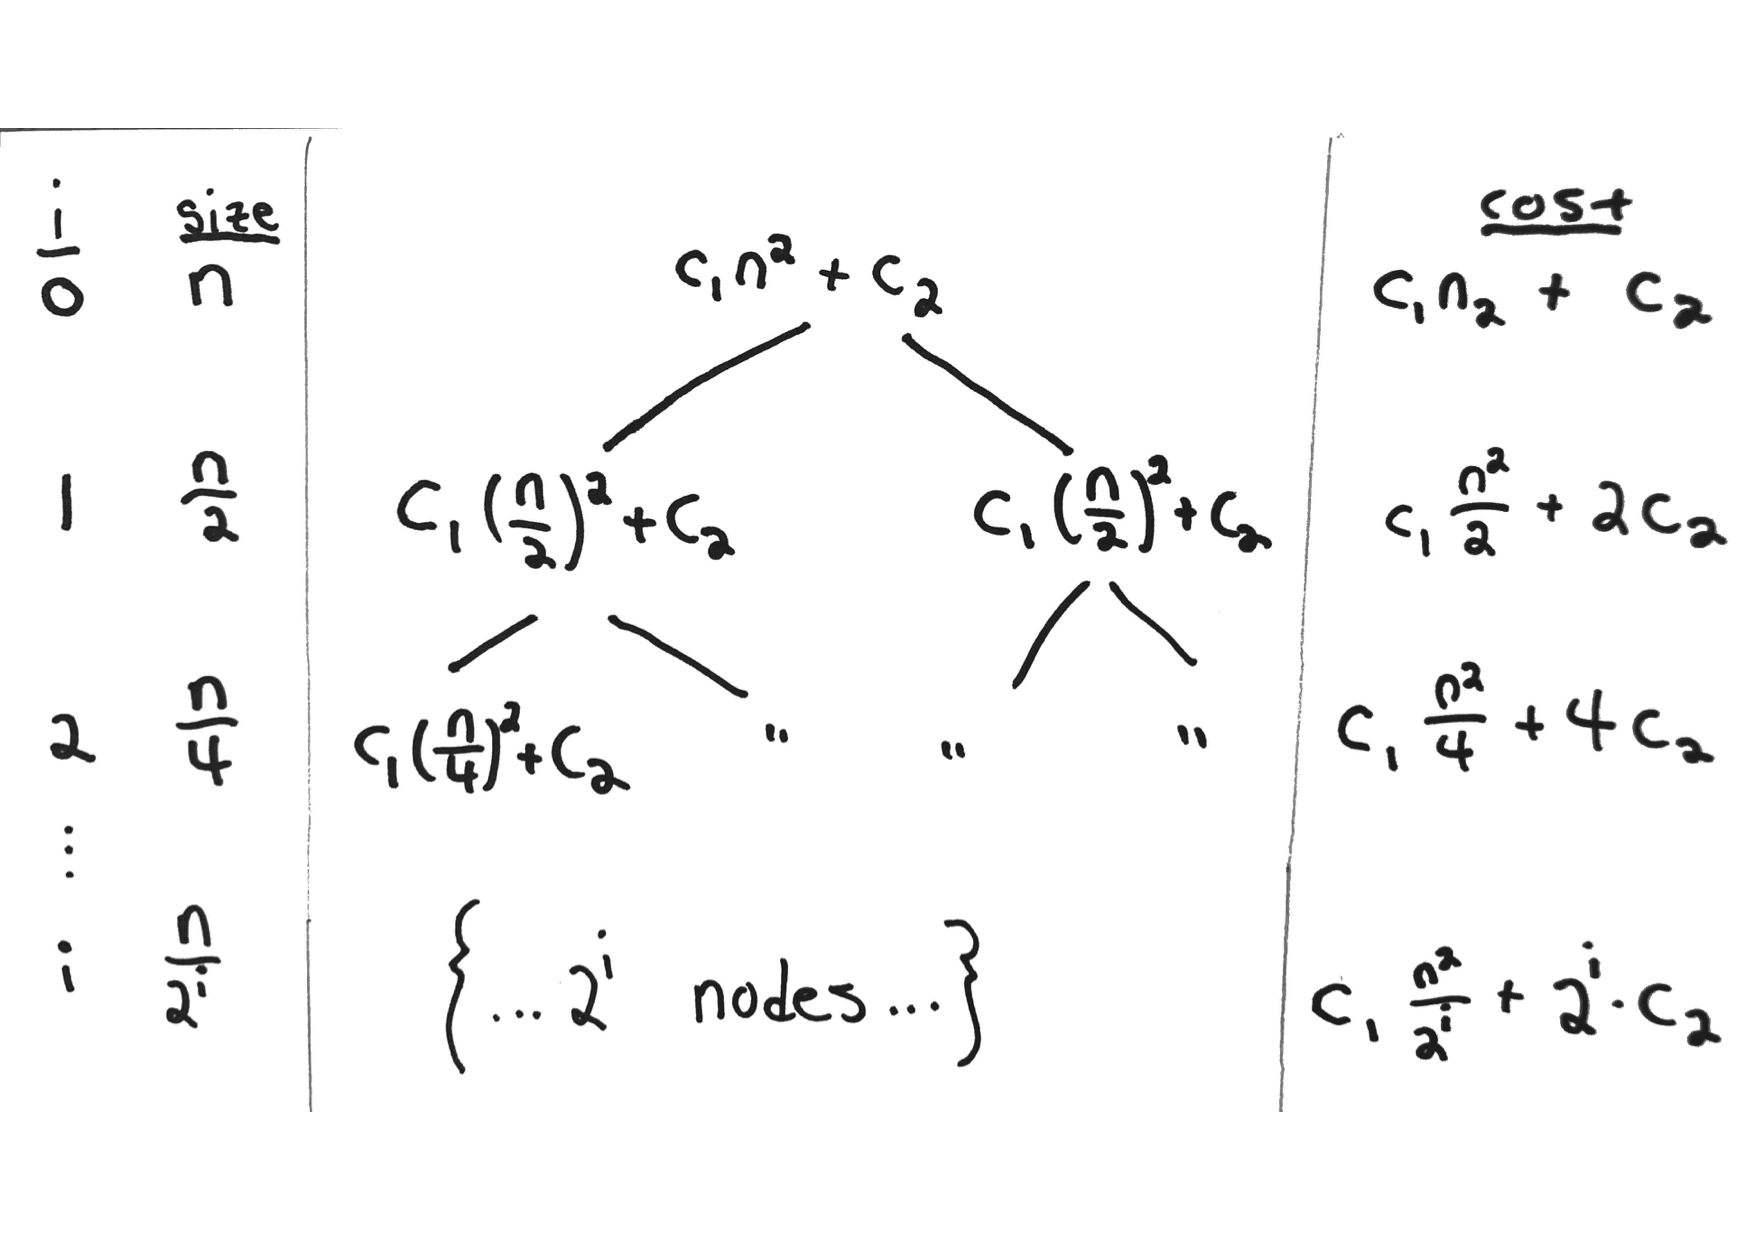 i size cost
0 n c₁n² + c₂ c₁n₂ + c₂
1 n/2 c₁(n/2)² + c₂ c₁(n/2)² + c₂ c₁ n²/2 + 2c₂
2 n/4 c₁(n/4)² + c₂ " " " c₁ n²/4 + 4c₂
⋮
i n/2ⁱ {... 2ⁱ nodes ...} c₁ n²/2ⁱ + 2ⁱ · c₂